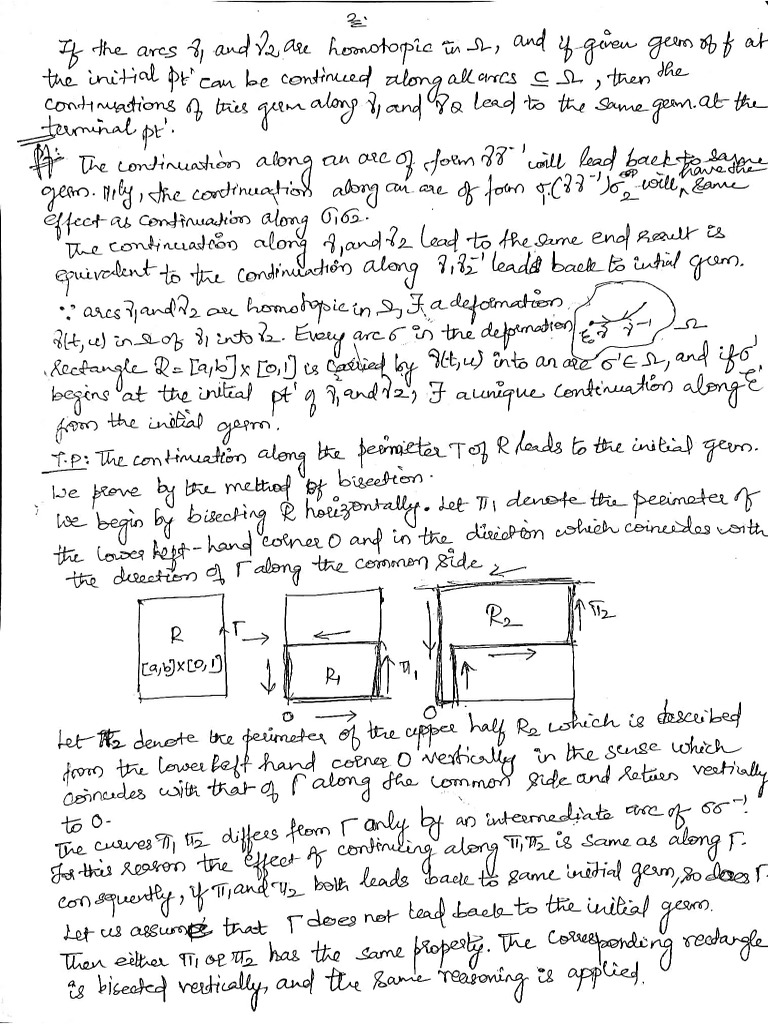 2.
If the arcs γ1 and γ2 are homotopic in Ω, and if given germ of f at
the initial pt' can be continued along all arcs ⊆ Ω, then the
continuations of this germ along γ1 and γ2 lead to the same germ at the
terminal pt'.
Pf: The continuation along an arc of form γγ⁻¹ will lead back to same
germ. |||ly, the continuation along an arc of form σ1(γγ⁻¹)σ2 will have the same
effect as continuation along σ1σ2.
The continuation along γ1 and γ2 lead to the same end result is
equivalent to the continuation along γ1γ2⁻¹ leads back to initial germ.
∵ arcs γ1 and γ2 are homotopic in Ω, ∃ a deformation
γ(t,u) in Ω of γ1 into γ2. Every arc σ in the deformation
γ γ⁻¹ Ω
Rectangle R = [a,b]x[0,1] is carried by γ(t,u) into an arc σ' ∈ Ω, and if σ'
begins at the initial pt' of γ1 and γ2, ∃ a unique continuation along
from the initial germ.
T.P: The continuation along the perimeter Γ of R leads to the initial germ.
We prove by the method of bisection.
We begin by bisecting R horizontally. Let π1 denote the perimeter of
the lower left-hand corner O and in the direction which coincides with
the direction of Γ along the common side
R Γ
[a,b]x[0,1]
R1 π1
O
R2 π2
O
Let π2 denote the perimeter of the upper half R2 which is described
from the lower left hand corner O vertically in the sense which
coincides with that of Γ along the common side and retues vertically
to O.
The curves π1 π2 differs from Γ only by an intermediate arc of σσ⁻¹.
For this reason the effect of continuing along π1π2 is same as along Γ.
consequently, if π1 and π2 both leads back to same initial germ, so does Γ.
Let us assume that Γ does not lead back to the initial germ.
Then either π1 or π2 has the same property. The corresponding rectangle
is bisected vertically, and the same reasoning is applied.